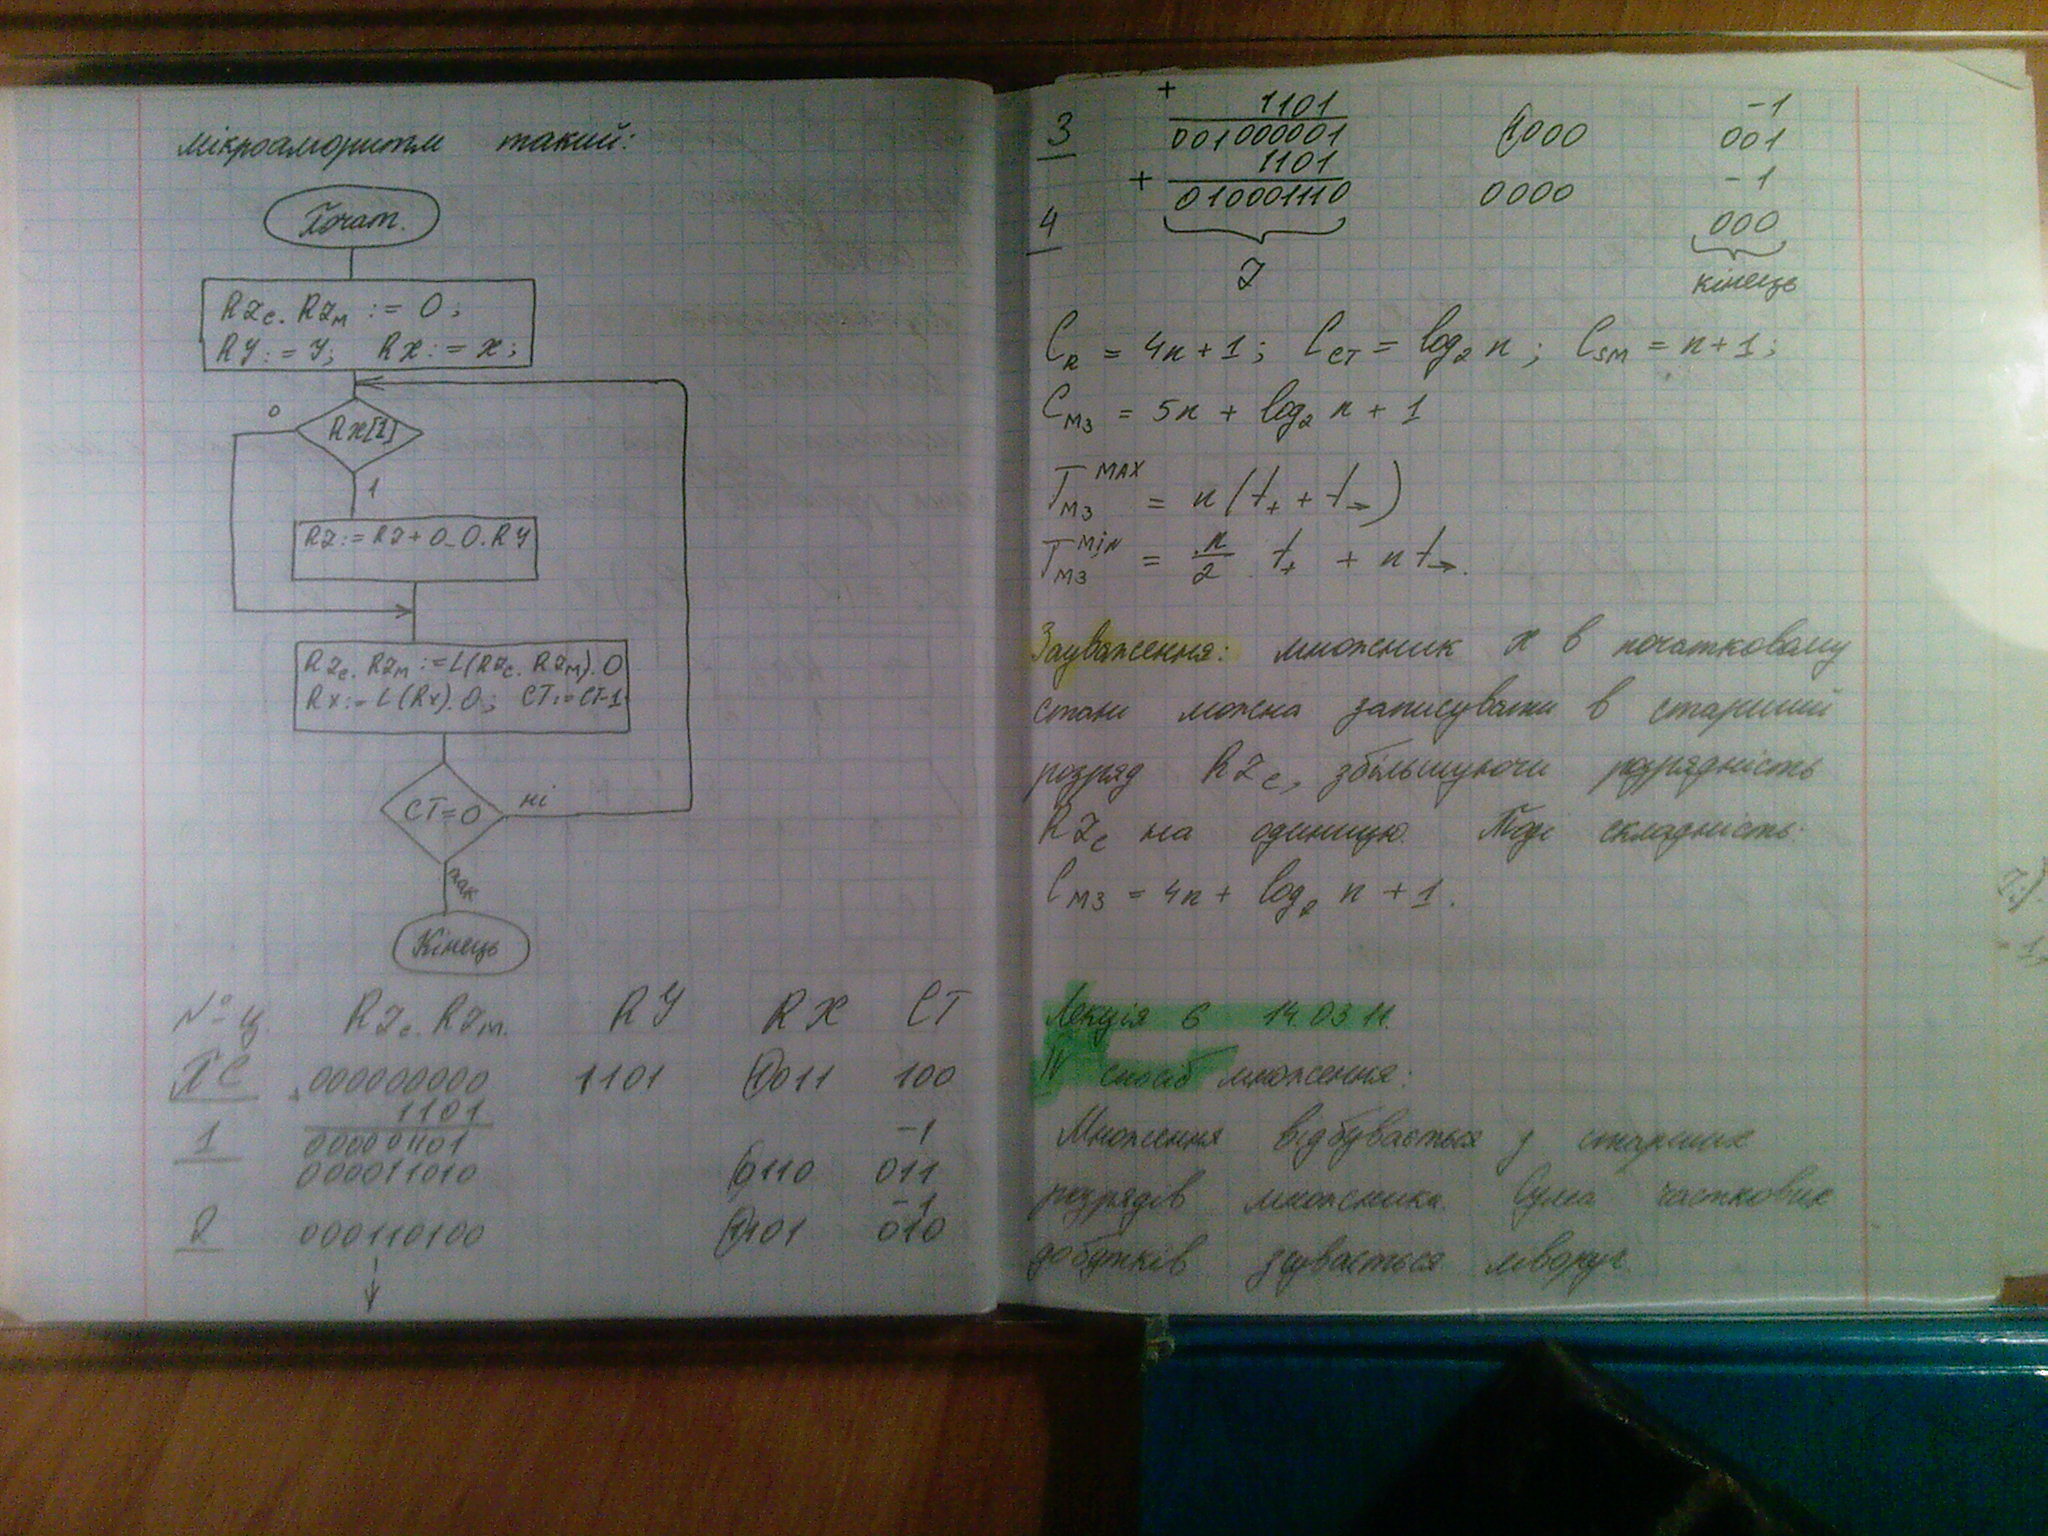 мікроалгоритм такий:
Почат.
RZc. RZм := 0;
RY := Y; RX := X;
RX[1]
0
1
RZ := RZ + 0_0.RY
RZc. RZм := L(RZc. RZм).0
RX := L(RX).0; CT := CT-1
CT=0
ні
так
Кінець
№ ц. RZc. RZм. RY RX CT
ПС 000000000 1101 1011 100
1101
1 000001101 -1
000011010 0110 011
-1
2 000110100 1101 010
+ 1101 -1
3 001000001 1000 001
+ 1101 -1
010001110 0000
4 000
Z кінець
C_R = 4n+1; C_CT = log₂ n; C_SM = n+1;
C_МЗ = 5n + log₂ n + 1
T_МЗ^MAX = n(t₊ + t→)
T_МЗ^MIN = n/2 t₊ + n t→.
Зауваження: множник X в початковому
стані можна записувати в старший
розряд RZc, збільшуючи розрядність
RZc на одиницю. Тоді складність:
C_МЗ = 4n + log₂ n + 1.
Лекція 6 14.03.11.
IV спосіб множення:
Множення відбувається з старших
розрядів множника. Сума часткових
добутків зсувається ліворуч.